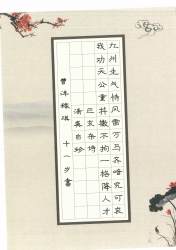 九州生气恃风雷万马齐喑究可哀
我劝天公重抖擞不拘一格降人才
己亥杂诗
清龚自珍
十一岁书